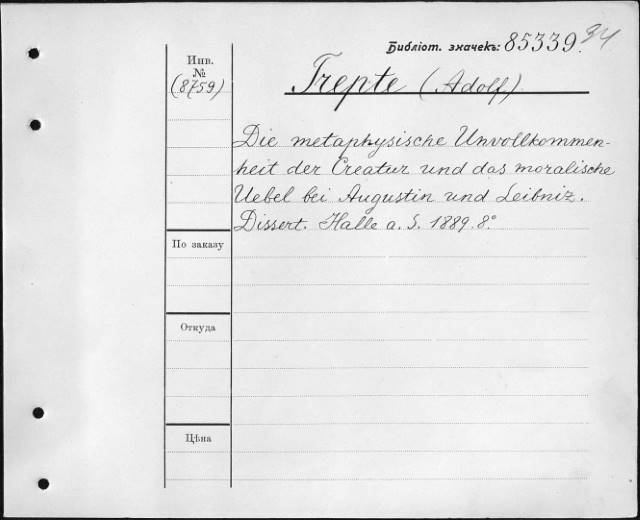 Библіот. значекъ: 85339 94
Инв.
№
(8759)
Trepte (Adolf)
Die metaphysische Unvollkommen-
heit der Creatur und das moralische
Uebel bei Augustin und Leibniz.
Dissert. Halle a. S. 1889. 8°
По заказу
Откуда
Цѣна